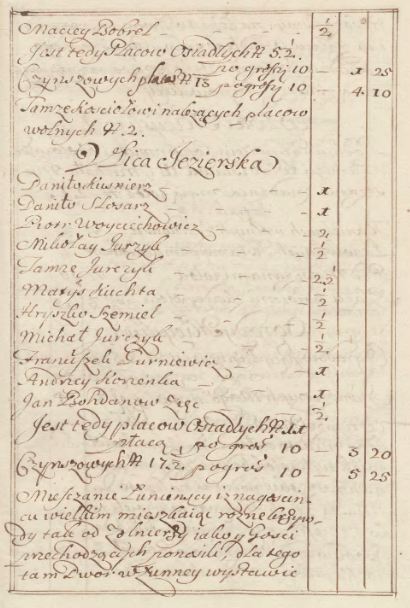 Maciey Bobrel – ½
Jest tedy Placow Osiadłych # 5½.
po grószy 10 – 1 25
Czynszowych placow # 13 po grószy 10 – 4 10
Tamze Kosciołowi nalezących placow
wolnych # 2.
Ulica Jezierska
Daniło Kusnierz – 1
Daniło Slosarz – 1
Piotr Woyciechowicz – 2
Mikołay Jurzyk – ½
Tamze Jurczyk –
Matys Kuchta – 2½
Hryszko Szemiel – ½
Michał Jurczyk – ½
Franciszek Zurniewicz – 2
Andrzey Korzenka – 1
Jan Bohdanow Zięc – ½
Jest tedy placow Osiadłych # 11
płacą po grosz 10 – 3 20
Czynszowych # 17½ po grósz 10 – 5 25
Miesczanie Łuninscy iz na goscin-
cu wielkim mieszkaiąc rozne krzyw-
dy tak od Zołnierzy iako y Gosci
przechodzących ponosili, dla tego
tam Dwor w Łunney wystawie